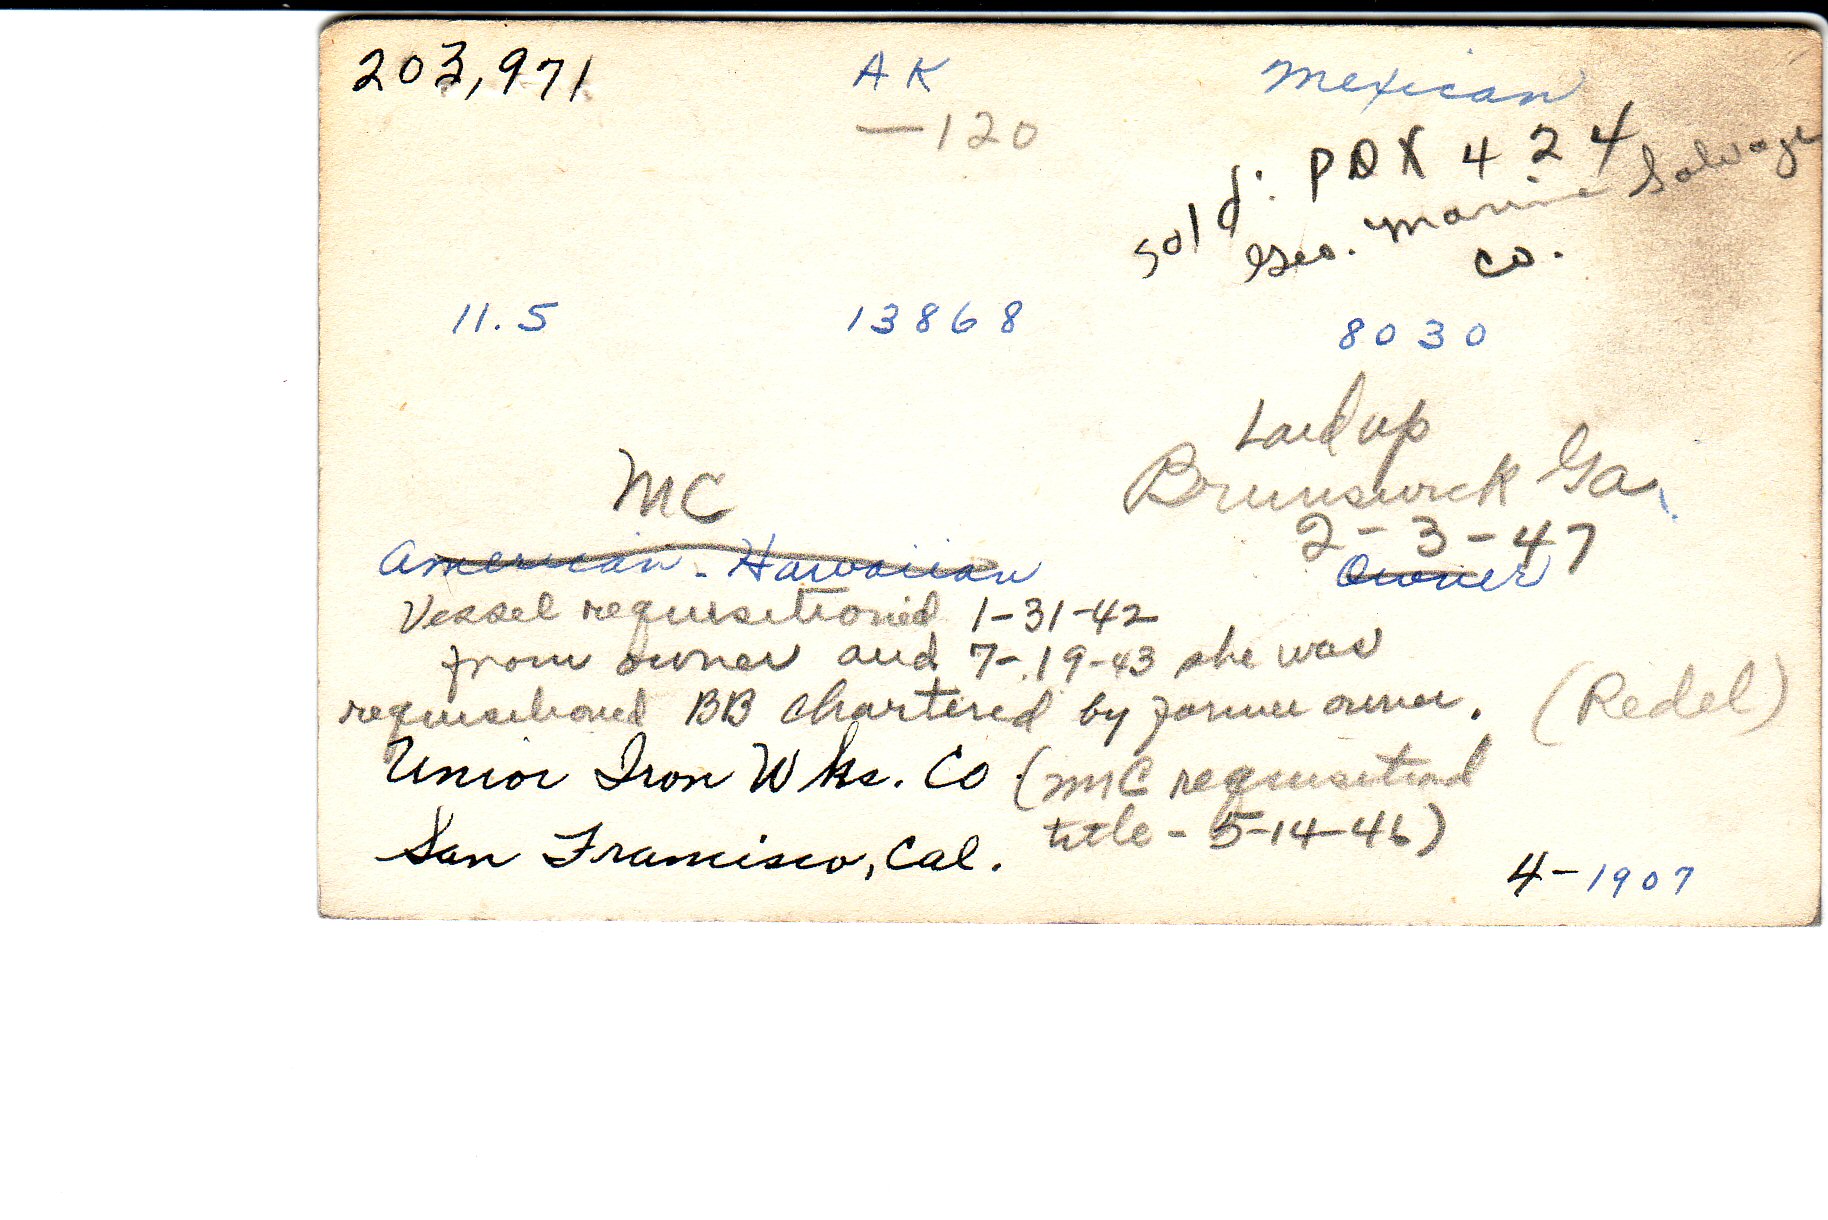 203,971 AK Mexican
-120
sold: PDX 424
Geo. Marine Salvage
Co.
11.5 13868 8030
Laid up
MC Brunswick Ga.
2-3-47
American-Hawaiian Owner
Vessel requisitioned 1-31-42
from owner and 7-19-43 she was
requisitioned BB chartered by former owner. (Redel)
Union Iron Wks. Co. (MC requisitiond
title - 5-14-46)
San Francisco, Cal.
4-1907